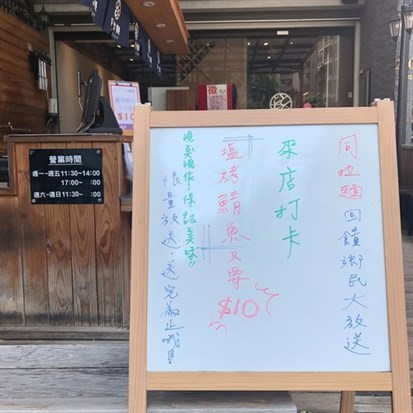 同拉麵回饋鄉民大放送
來店打卡
塩烤鯖魚只要
$10
現烤現作保証美味!!
限量放送,送完為止哦!
營業時間
週一~週五11:30~14:00
17:00~ :00
週六~週日11:30~ :00
$10